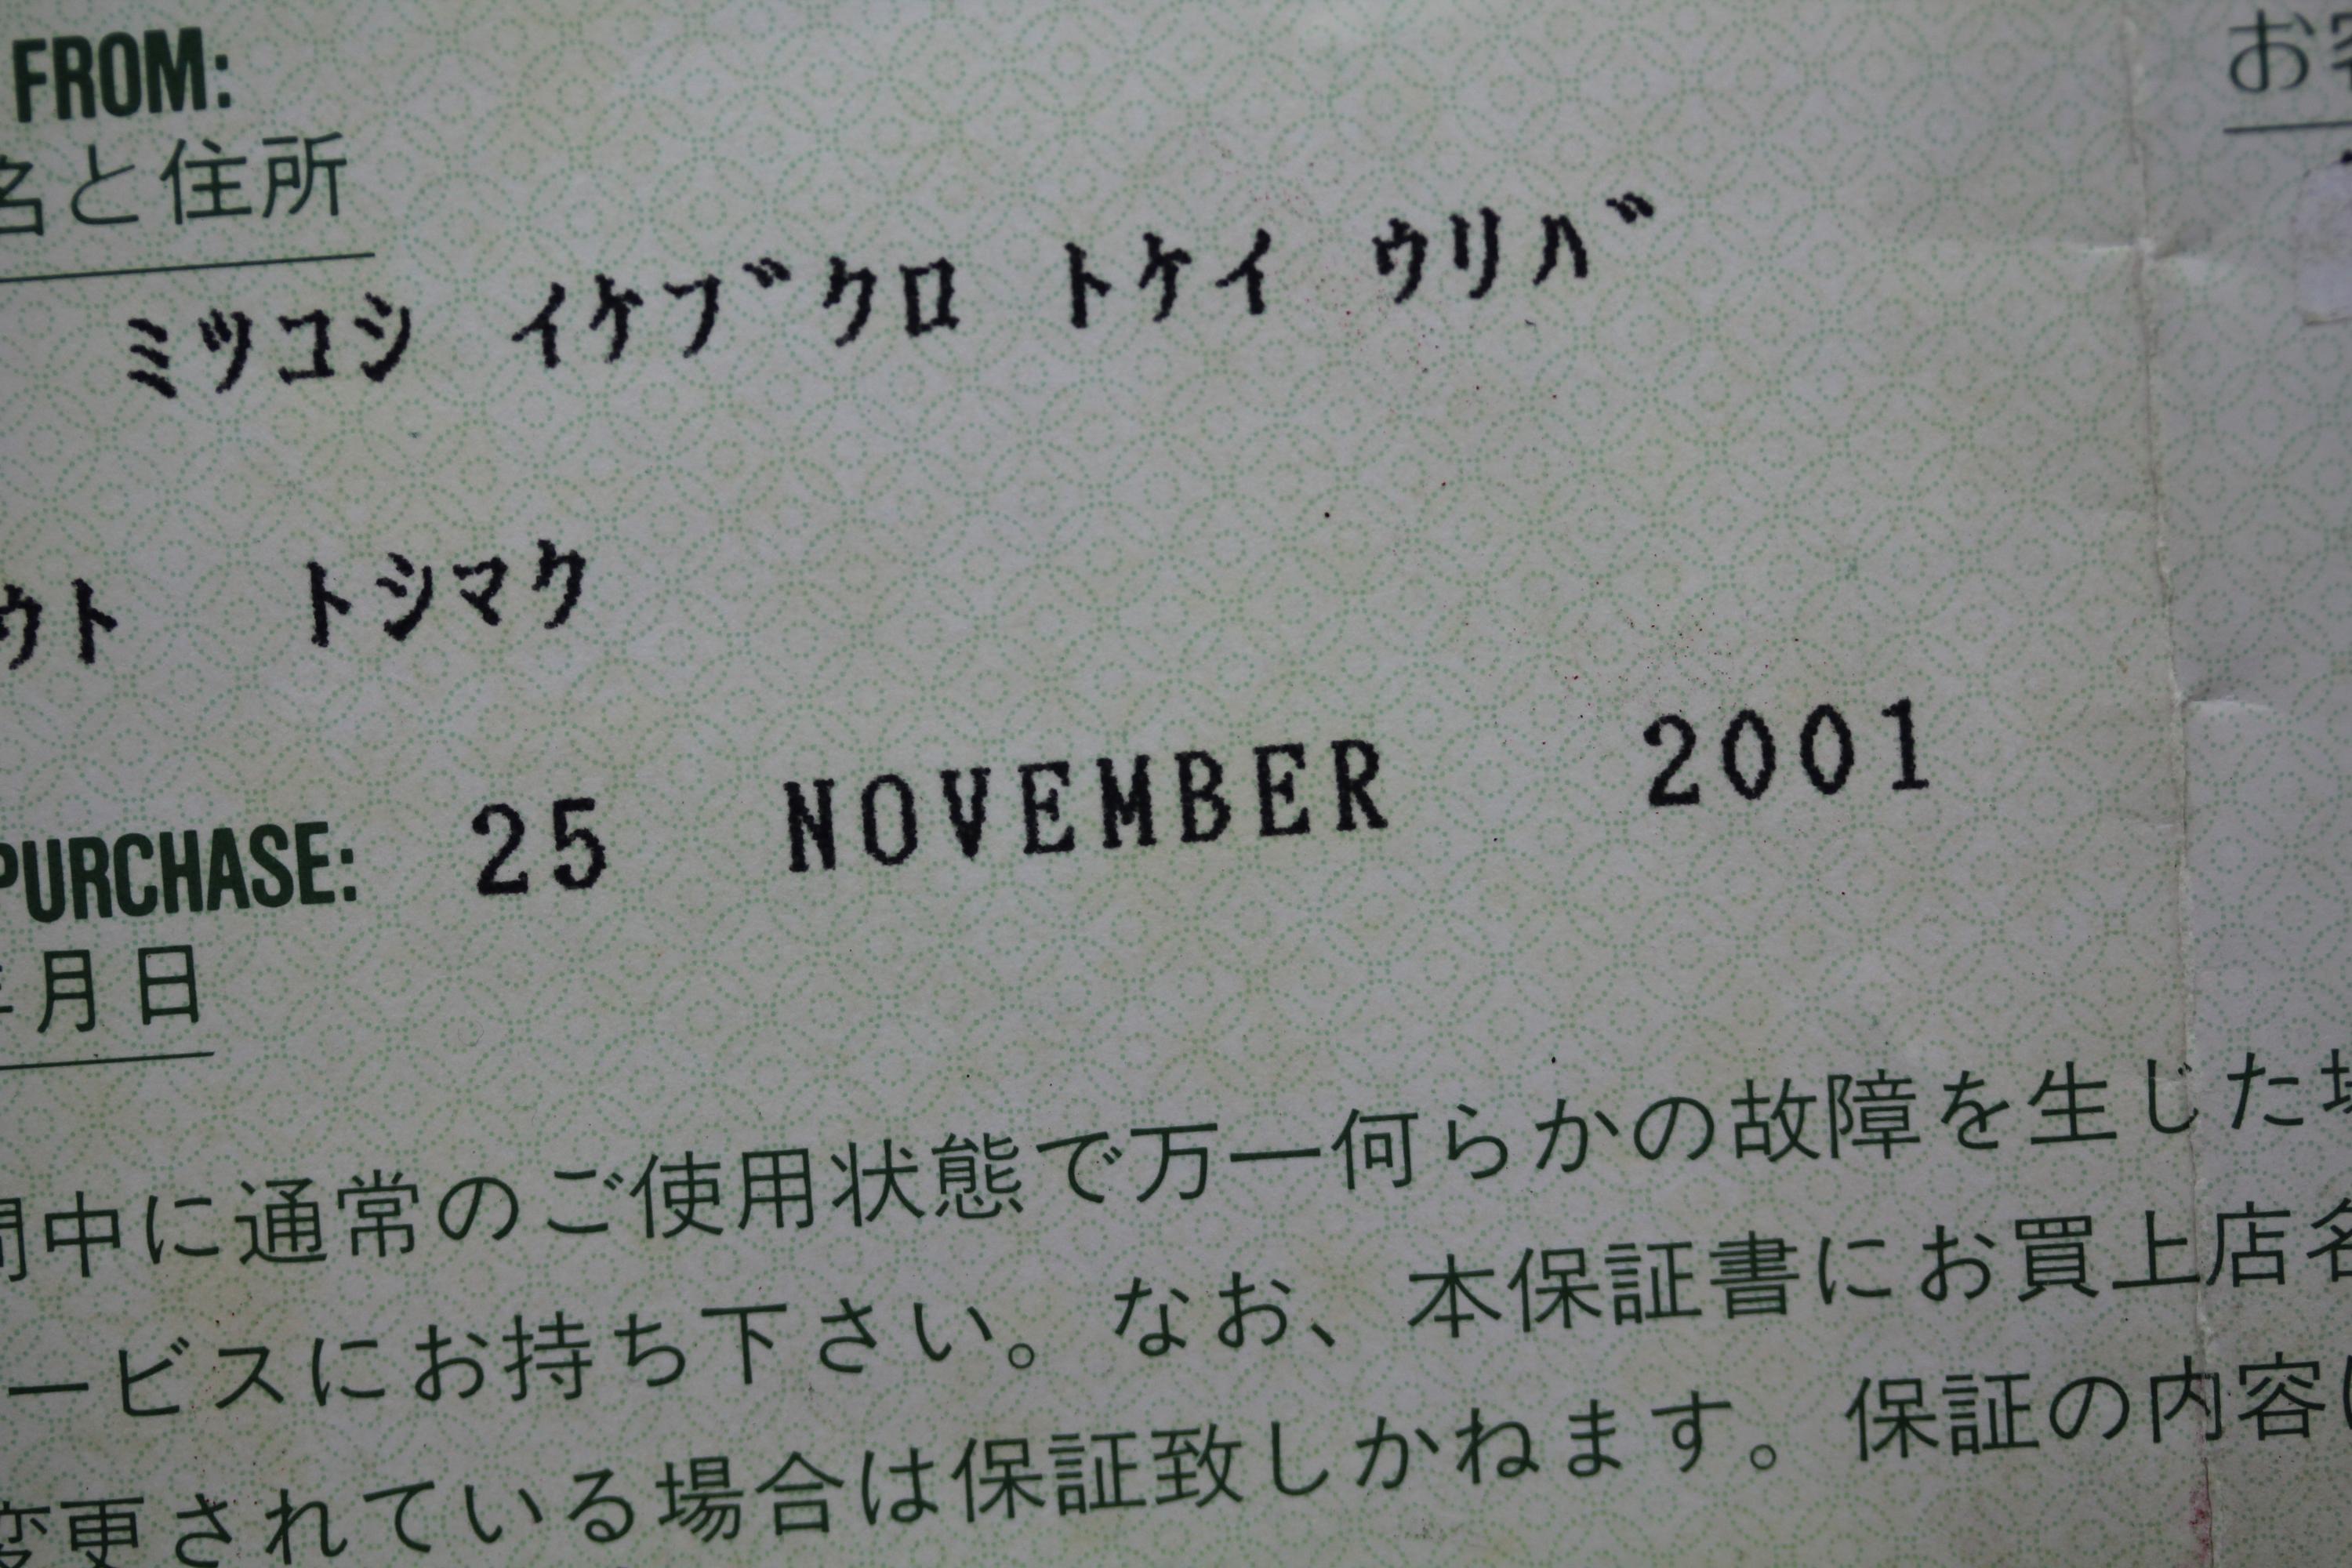 FROM:
お客
名と住所
ﾐﾂｺｼ ｲｹﾌﾞｸﾛ ﾄｹｲ ｳﾘﾊﾞ
ｳﾄ ﾄｼﾏｸ
PURCHASE: 25 NOVEMBER 2001
年月日
間中に通常のご使用状態で万一何らかの故障を生じた場
ービスにお持ち下さい。なお、本保証書にお買上店名
変更されている場合は保証致しかねます。保証の内容は